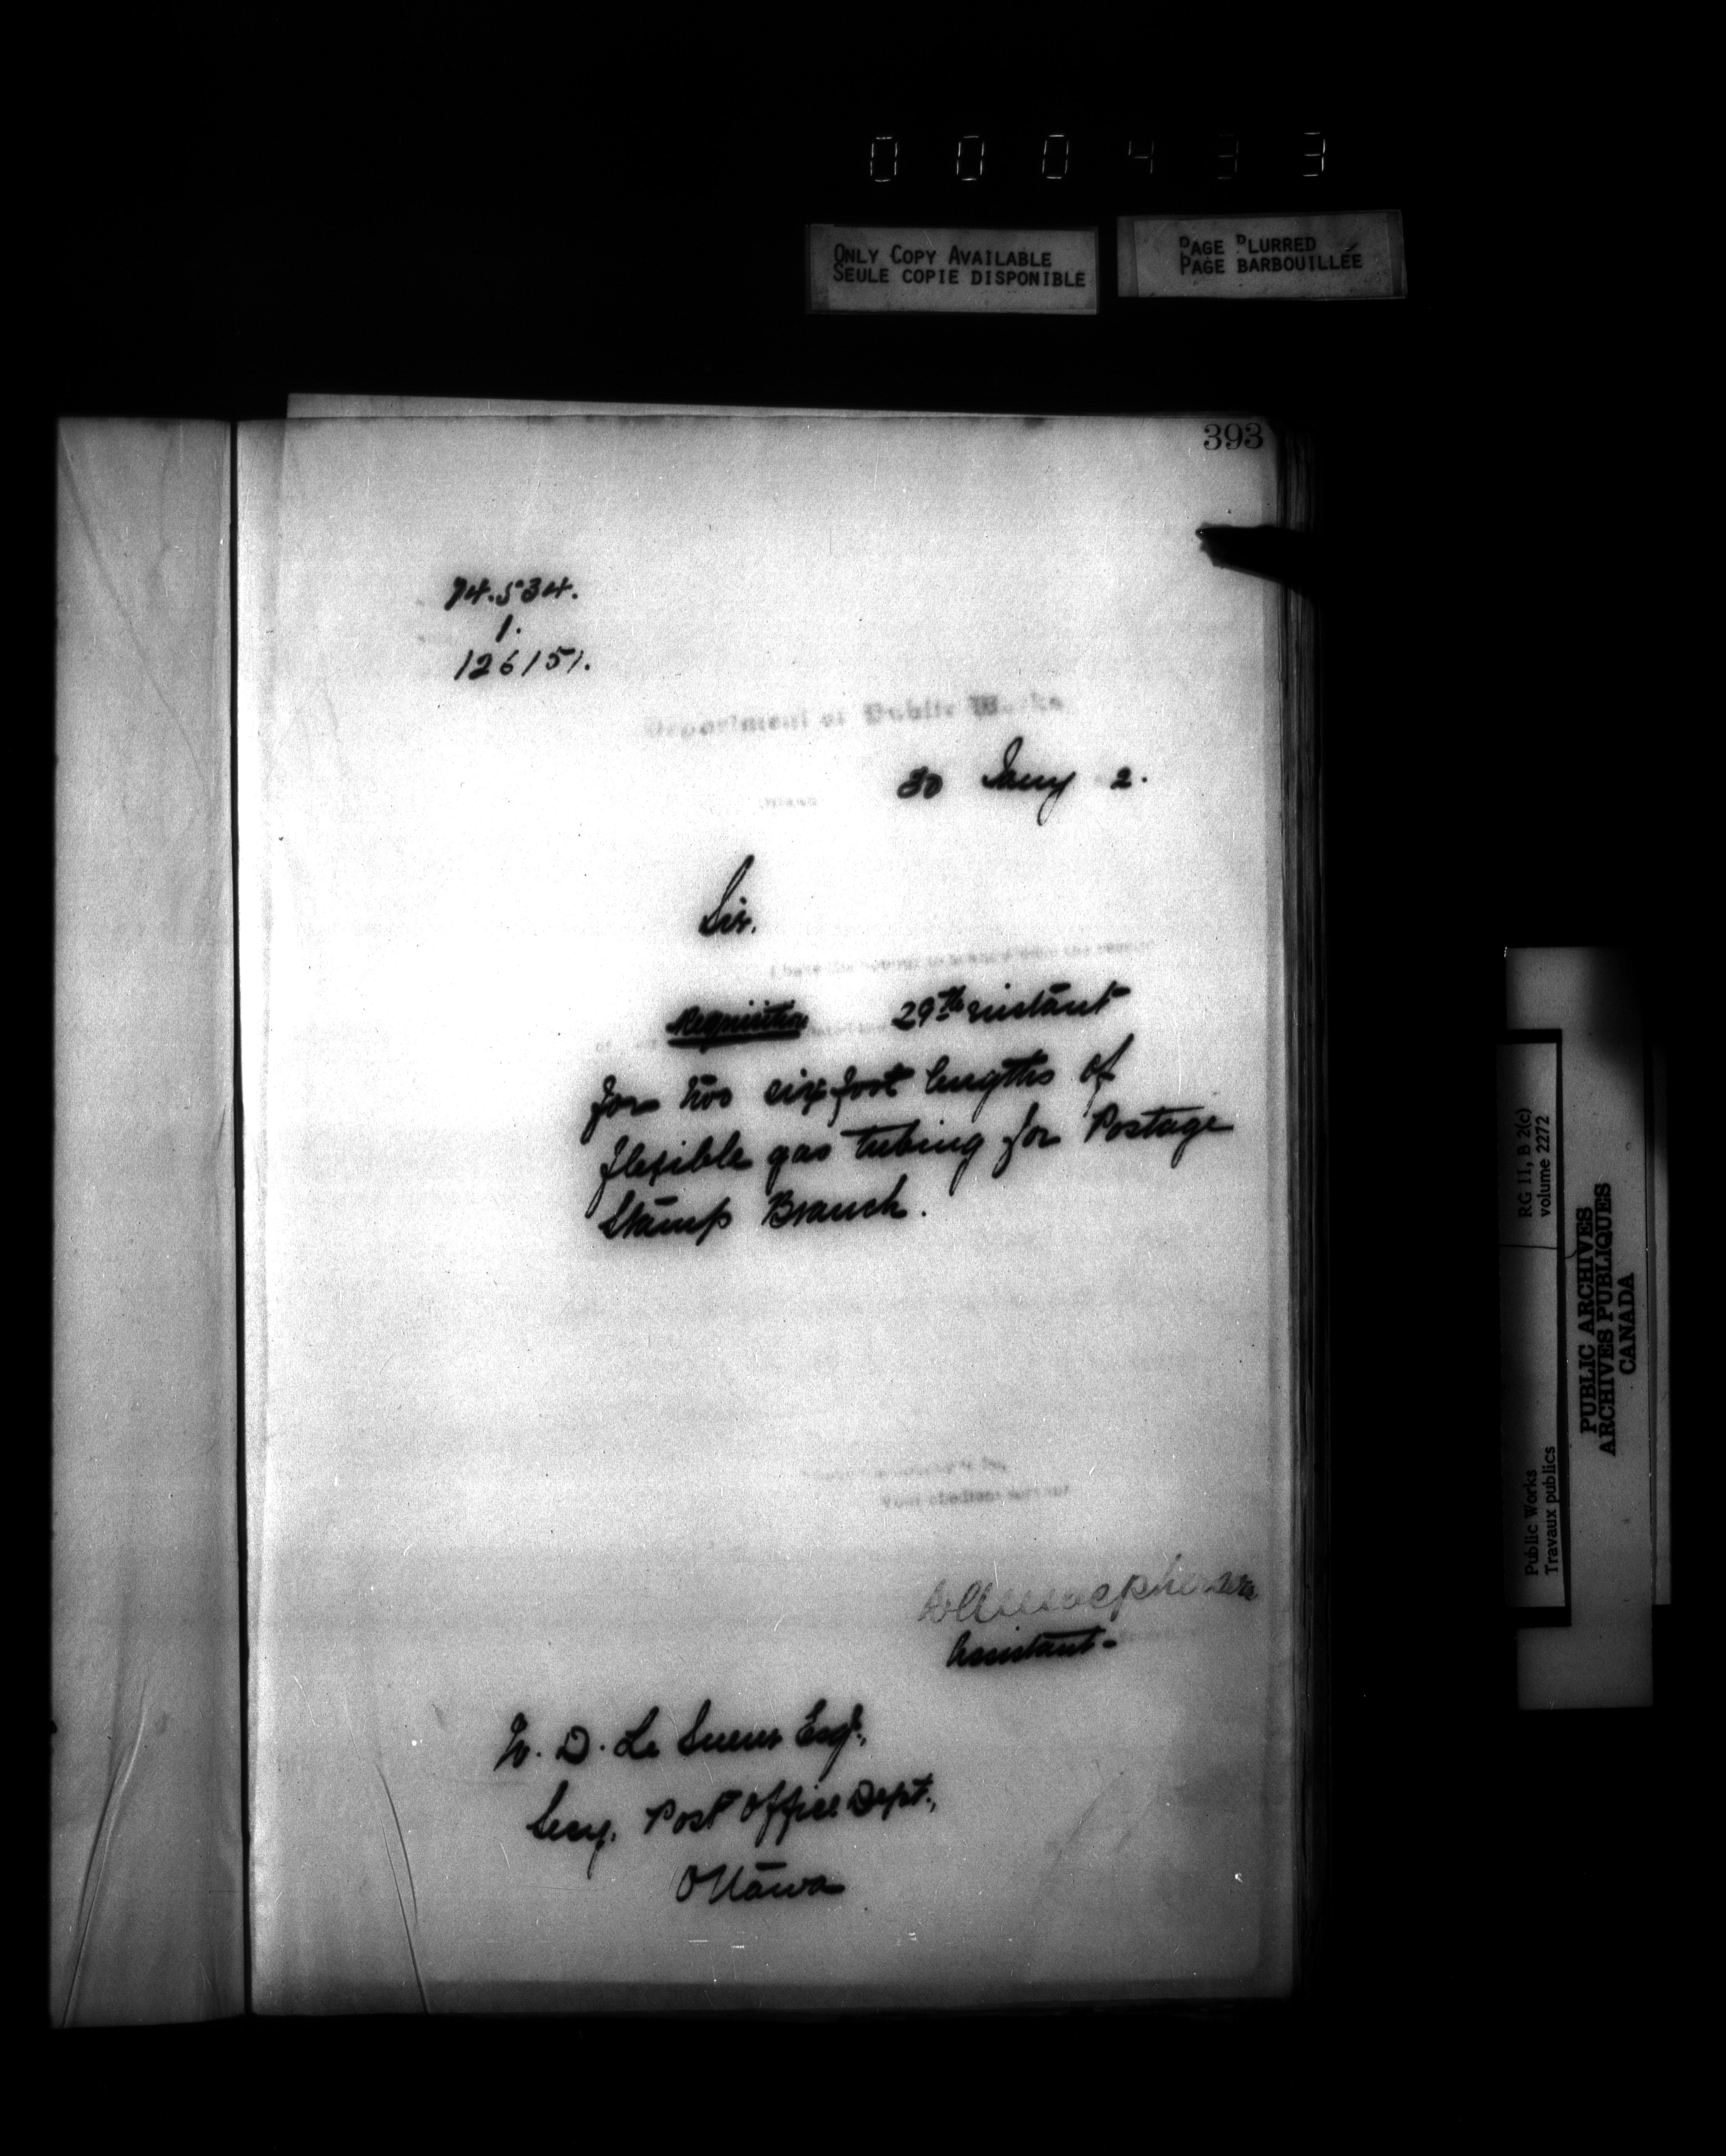 000433
ONLY COPY AVAILABLE
SEULE COPIE DISPONIBLE
PAGE BLURRED
PAGE BARBOUILLÉE
393
74.534.
1.
126151.
Department of Public Works
Ottawa
30 Jany 2.
Sir.
I have the honour to acknowledge the receipt
Requisition 29th instant
for two six foot lengths of
flexible gas tubing for Postage
Stamp Branch.
Your obedient servant
Assistant-
W. D. Le Sueur Esqr.,
Secy. Post Office Dept.,
Ottawa
Public Works
Travaux publics
RG 11, B 2(c)
volume 2272
PUBLIC ARCHIVES
ARCHIVES PUBLIQUES
CANADA